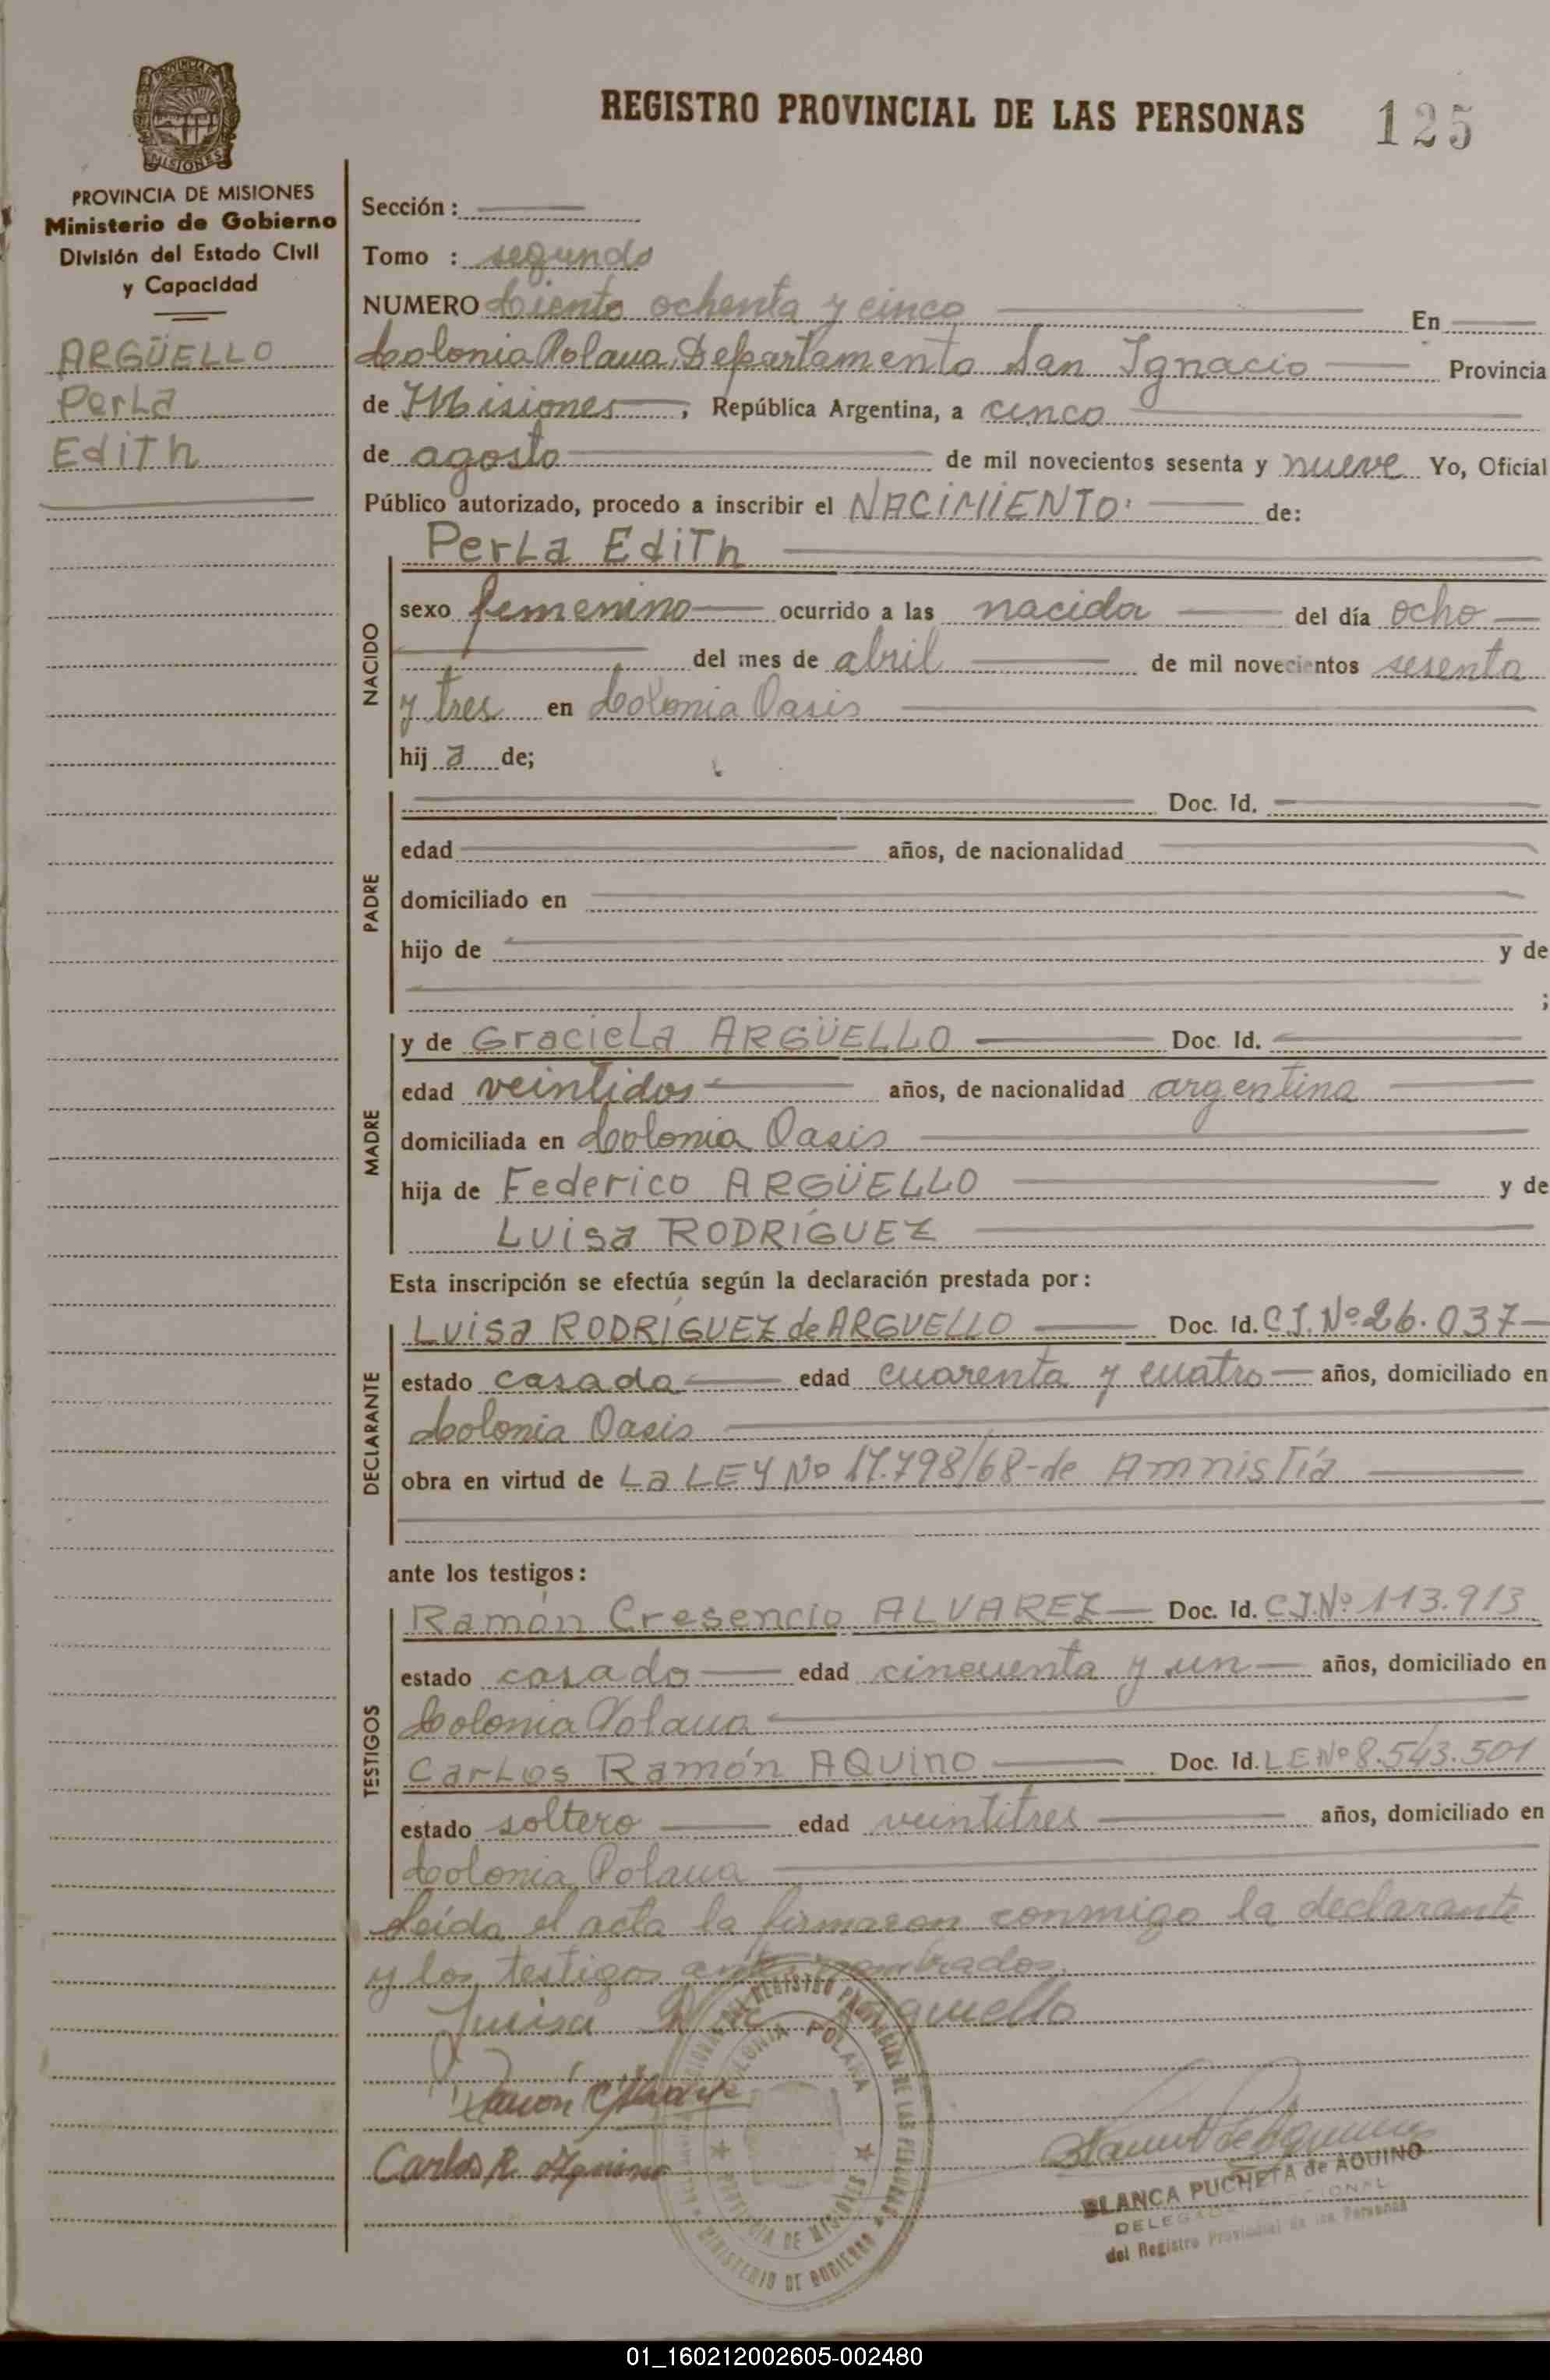 REGISTRO PROVINCIAL DE LAS PERSONAS 125
PROVINCIA DE MISIONES
MISIONES
PROVINCIA DE MISIONES
Ministerio de Gobierno
División del Estado Civil
y Capacidad
ARGÜELLO
Perla
Edith
Sección :
Tomo : segundo
NUMERO Ciento ochenta y cinco En
Colonia Polana, Departamento San Ignacio Provincia
de Misiones, República Argentina, a cinco
de agosto de mil novecientos sesenta y nueve Yo, Oficial
Público autorizado, procedo a inscribir el NACIMIENTO: de:
Perla Edith
NACIDO
sexo femenino ocurrido a las nacida del día ocho
del mes de abril de mil novecientos sesenta
y tres en Colonia Oasis
hij a de;
PADRE
Doc. Id.
edad años, de nacionalidad
domiciliado en
hijo de y de
;
MADRE
y de Graciela ARGÜELLO Doc. Id.
edad veintidos años, de nacionalidad argentina
domiciliada en Colonia Oasis
hija de Federico ARGÜELLO y de
Luisa RODRÍGUEZ
Esta inscripción se efectúa según la declaración prestada por:
DECLARANTE
Luisa RODRÍGUEZ de ARGUELLO Doc. Id. C.I. Nº 26.037
estado casada edad cuarenta y cuatro años, domiciliado en
Colonia Oasis
obra en virtud de La LEY Nº 17.798/68-de Amnistía
ante los testigos:
TESTIGOS
Ramón Cresencio ALVAREZ Doc. Id. C.I.Nº 113.913
estado casado edad cincuenta y un años, domiciliado en
Colonia Polana
Carlos Ramón AQUINO Doc. Id. LE Nº 8.543.501
estado soltero edad veintitres años, domiciliado en
Colonia Polana
Leída el acta la firmaron conmigo la declarante
y los testigos antes nombrados.
Luisa R de Arguello
Ramón C Alvarez
Carlos R. Aquino
COLONIA POLANA
PROVINCIA DE MISIONES
MINISTERIO DE GOBIERNO
BLANCA PUCHETA de AQUINO
DELEGADO SECCIONAL
del Registro Provincial de las Personas
01_160212002605-002480